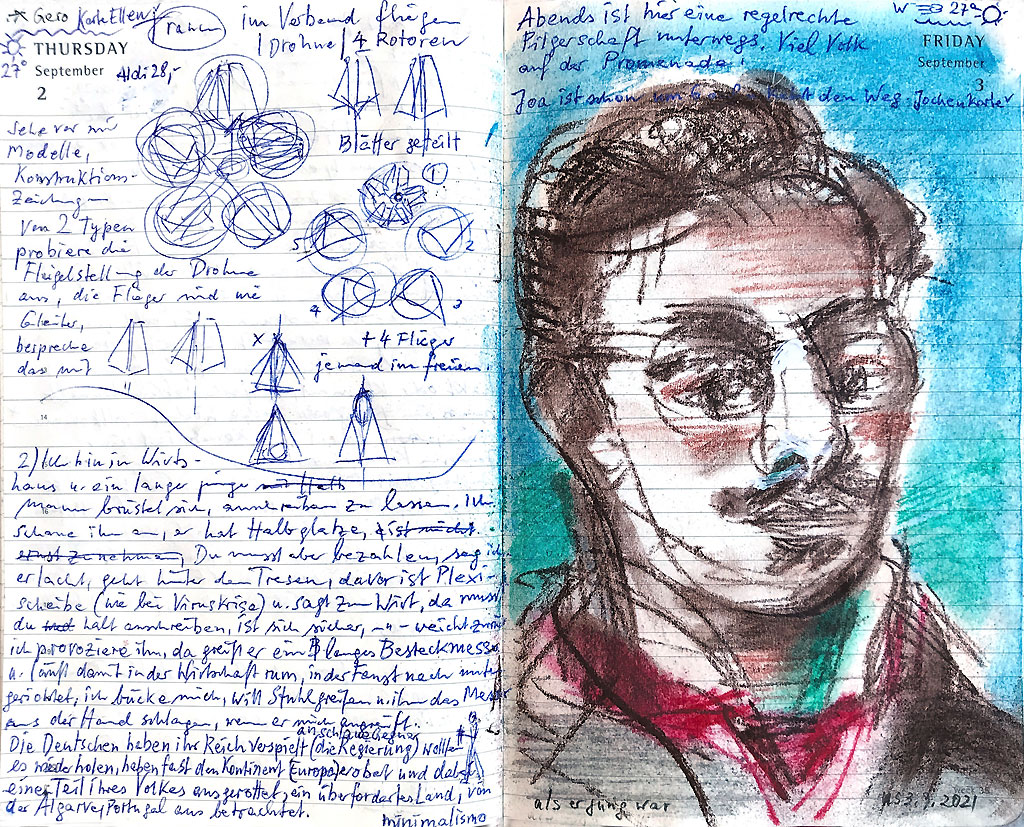 Gero Karte Ellen
rahm
im Verband fliegen
THURSDAY
27°
September
Aldi 28,-
2
1 Drohne / 4 Rotoren
Blätter geteilt
Sehe vor mir
Modelle,
Konstruktions-
Zeichnungen
Von 2 Typen
probiere die
Flügelstellung der Drohne
aus, die Flieger sind wie
Gleiter,
bespreche
das mit
1
2
3
4
5
x x
+ 4 Flieger
jemand im freien.
14
2) Ich bin im Wirts-
haus u. ein langer junger
Mann brüstet sich, anschreiben zu lassen. Ich
schaue ihn an, er hat Halbglatze, ist nicht
ernst zu nehmen, Du musst aber bezahlen, sag ich
er lacht, geht hinter den Tresen, davor ist Plexi-
scheibe (wie bei Viruskrise) u. sagt zum Wirt, da musst
du halt anschreiben, ist sich sicher, weicht zurück
ich provoziere ihn, da greift er ein langes Besteckmesser
u. läuft damit in der Wirtschaft rum, in der Faust nach unten
gerichtet, ich bücke mich, will Stuhl greifen u. ihm das Messer
aus der Hand schlagen, wenn er mich angreift.
Die Deutschen haben ihr Reich verspielt (die Regierung) wollte
es wiederholen, haben fast den Kontinent Europa erobert und dabei
einen Teil ihres Volkes ausgerottet, ein überfordertes Land, von
der Algarve, Portugal aus betrachtet.
minimalismo
Abends ist hier eine regelrechte
Pilgerschaft unterwegs. Viel Volk
auf der Promenade!
W 27°
FRIDAY
September
3
Joa ist schon den Weg. Jochen Karte
week 35
als er jung war
3.9.2021